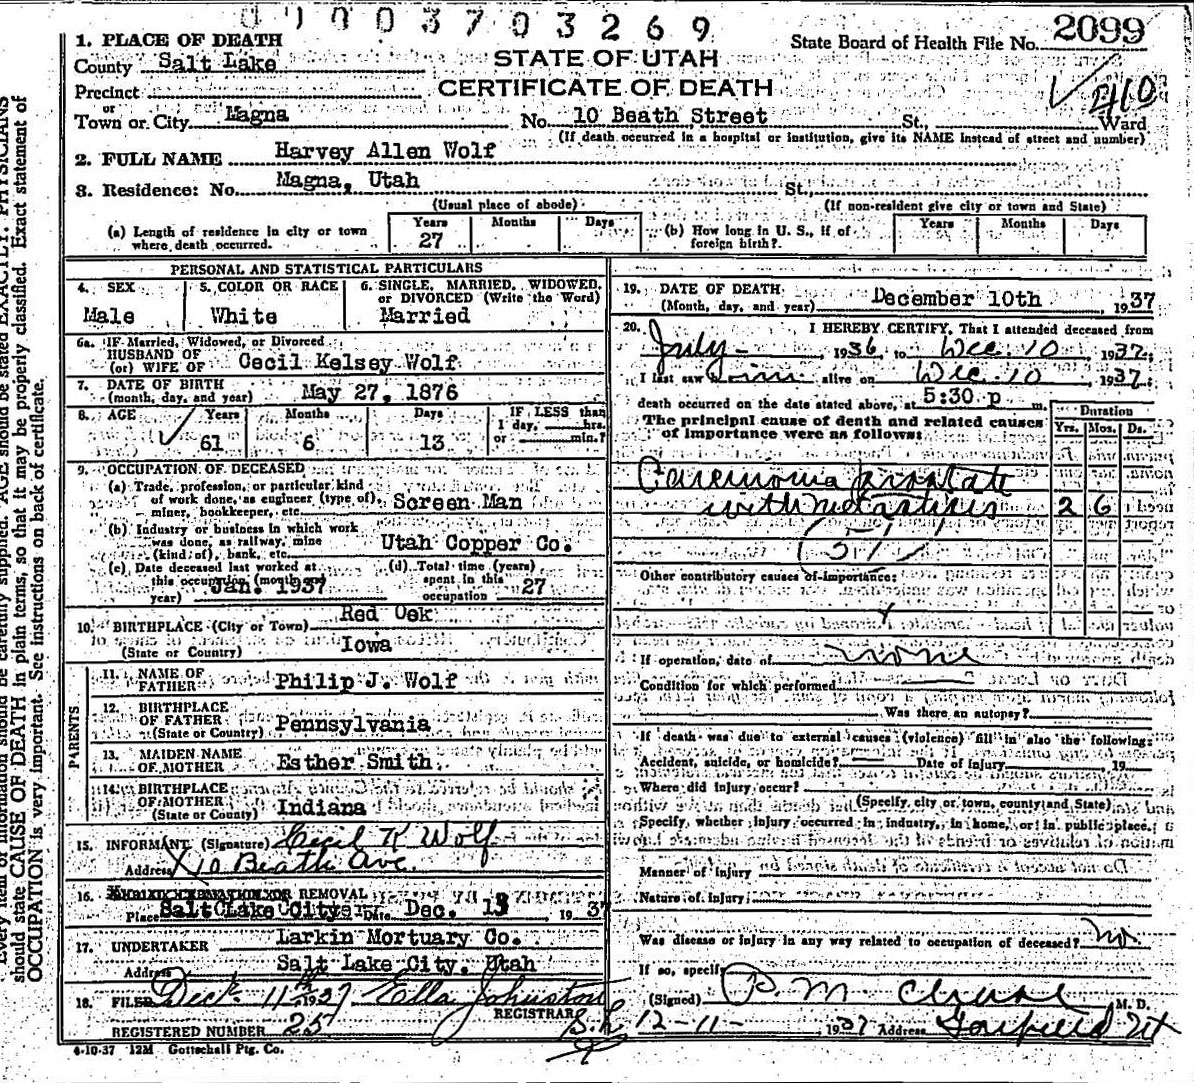 0 1 0 0 3 7 0 3 2 6 9
State Board of Health File No. 2099
STATE OF UTAH
CERTIFICATE OF DEATH
410
1. PLACE OF DEATH
County Salt Lake
Precinct
or
Town or City Magna No. 10 Beath Street St., Ward
(If death occurred in a hospital or institution, give its NAME instead of street and number)
2. FULL NAME Harvey Allen Wolf
3. Residence: No. Magna, Utah St.,
(Usual place of abode) (If non-resident give city or town and State)
(a) Length of residence in city or town where death occurred. Years 27 Months Days
(b) How long in U. S., if of foreign birth? Years Months Days
PERSONAL AND STATISTICAL PARTICULARS
4. SEX Male
5. COLOR OR RACE White
6. SINGLE, MARRIED, WIDOWED, or DIVORCED (Write the Word) Married
6a. IF Married, Widowed, or Divorced
HUSBAND OF
(or) WIFE OF Cecil Kelsey Wolf
7. DATE OF BIRTH
(month, day, and year) May 27, 1876
8. AGE Years 61 Months 6 Days 13 IF LESS than 1 day, hrs. or min.?
9. OCCUPATION OF DECEASED
(a) Trade, profession, or particular kind
of work done, as engineer (type of),
miner, bookkeeper, etc. Screen Man
(b) Industry or business in which work
was done, as railway, mine
(kind of), bank, etc. Utah Copper Co.
(c) Date deceased last worked at
this occupation (month and
year) Jan. 1937
(d) Total time (years)
spent in this
occupation 27
10. BIRTHPLACE (City or Town) Red Oak
(State or Country) Iowa
PARENTS
11. NAME OF
FATHER Philip J. Wolf
12. BIRTHPLACE
OF FATHER
(State or Country) Pennsylvania
13. MAIDEN NAME
OF MOTHER Esther Smith
14. BIRTHPLACE
OF MOTHER
(State or Country) Indiana
15. INFORMANT (Signature) Cecil K Wolf
Address X 10 Beath Ave.
16. REMOVAL
Place Salt Lake City Date Dec. 13 1937
17. UNDERTAKER Larkin Mortuary Co.
Address Salt Lake City, Utah
18. FILED Dec. 11th, 1937 Ella Johnston
REGISTRAR
REGISTERED NUMBER 25
4-10-37 12M Gottschall Ptg. Co.
19. DATE OF DEATH
(Month, day, and year) December 10th, 1937
20. I HEREBY CERTIFY, That I attended deceased from
July 1936 to Dec. 10 1937;
I last saw him alive on Dec. 10 1937;
death occurred on the date stated above, at 5:30 p m.
The principal cause of death and related causes
of importance were as follows:
Duration
Yrs. Mos. Ds.
Carcinoma prostate
with metastises 2 6
(51)
Other contributory causes of importance:
If operation, date of none
Condition for which performed
Was there an autopsy?
If death was due to external causes (violence) fill in also the following:
Accident, suicide, or homicide? Date of injury 19
Where did injury occur?
(Specify city or town, county and State)
Specify, whether injury occurred in industry, in home, or in public place.
Manner of injury
Nature of injury
Was disease or injury in any way related to occupation of deceased? no.
If so, specify
(Signed) P. M. M. D.
12-11- 1937 Address Garfield Ut
Every item of information should be carefully supplied. AGE should be stated EXACTLY. PHYSICIANS
should state CAUSE OF DEATH in plain terms, so that it may be properly classified. Exact statement of
OCCUPATION is very important. See instructions on back of certificate.